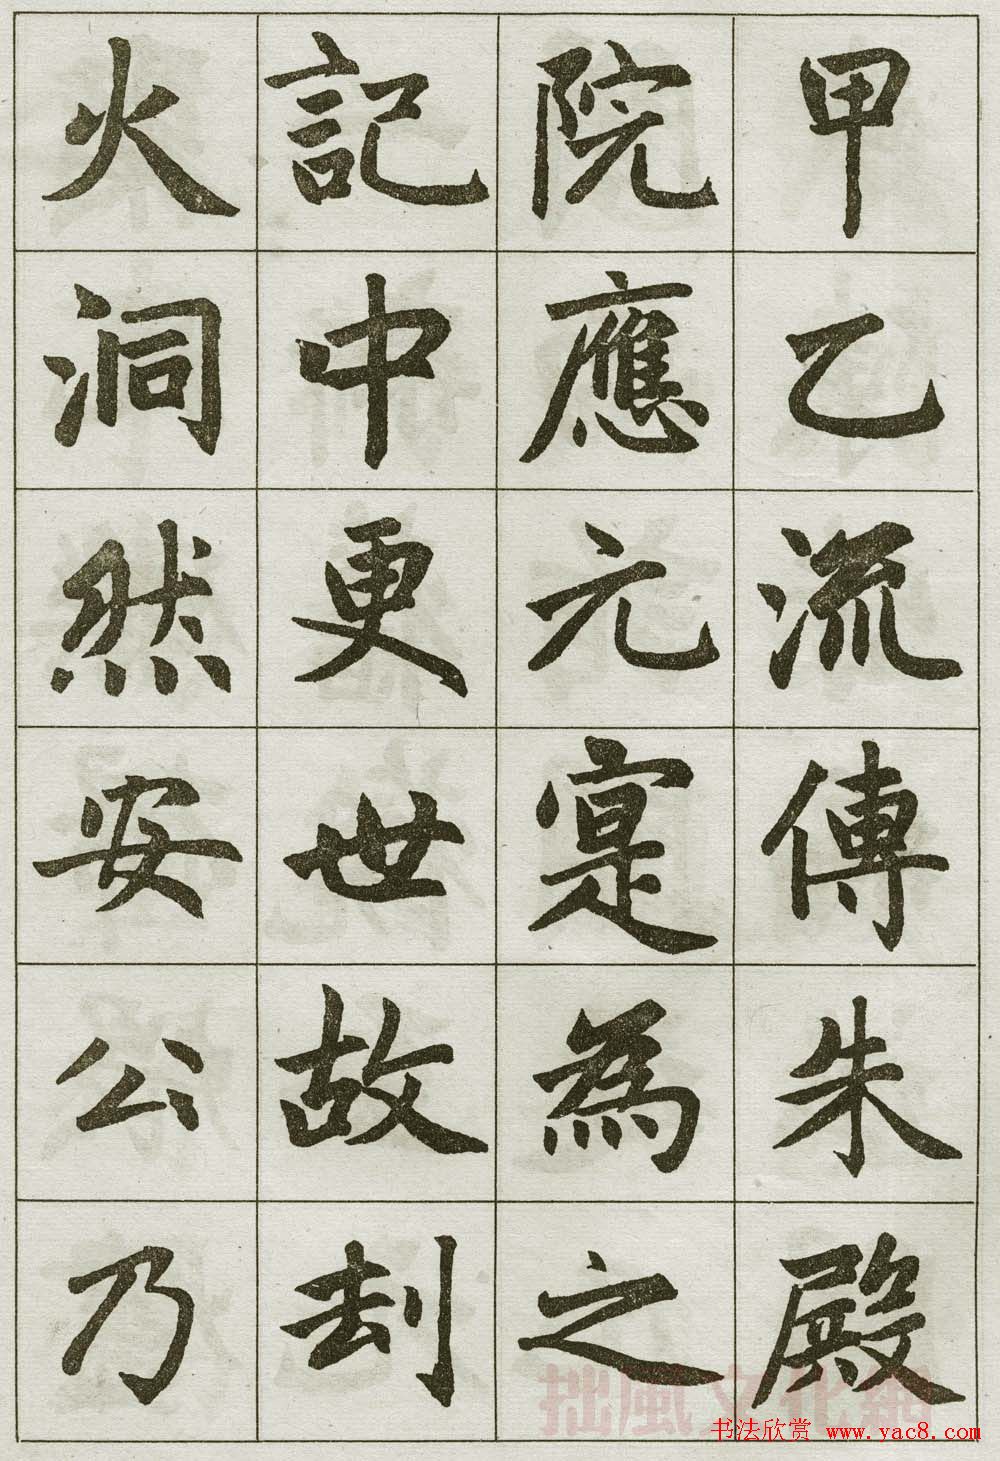 甲乙流傳朱殿
院應元寔為之
記中更世故刦
火洞然安公乃
拙風文化網
书法欣赏 www.yac8.com